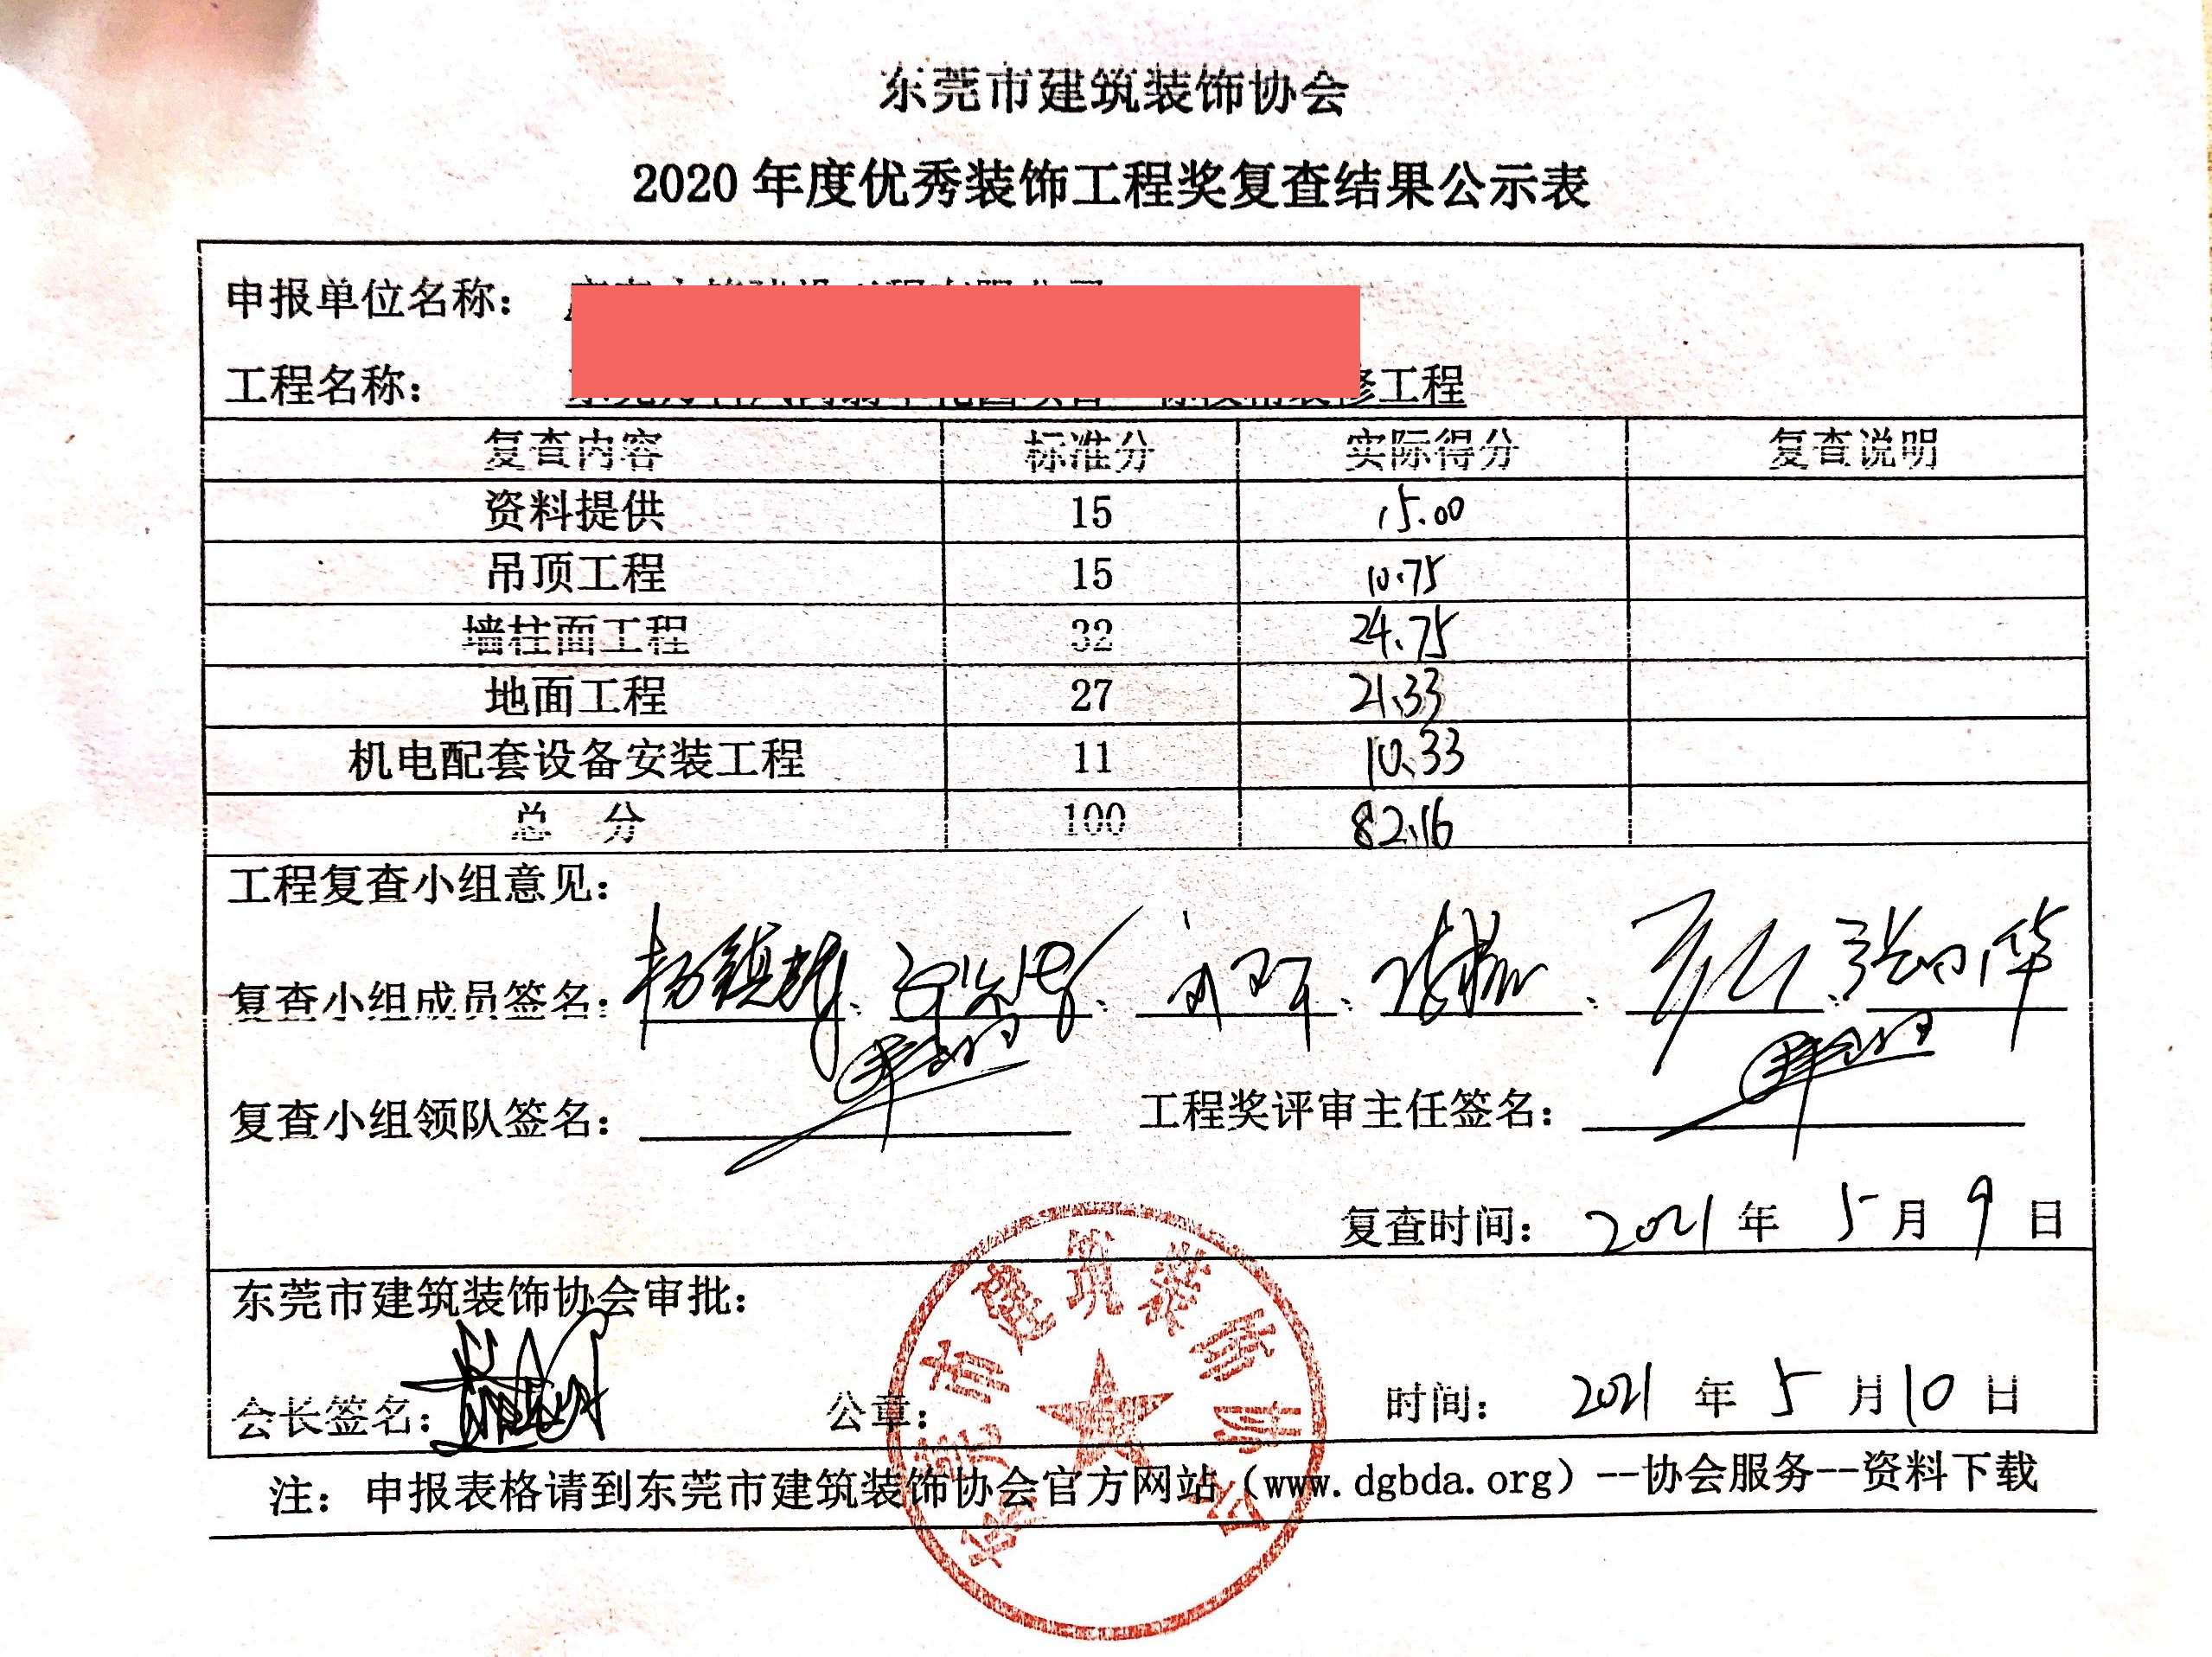 东莞市建筑装饰协会
2020年度优秀装饰工程奖复查结果公示表
申报单位名称：
工程名称： 修工程
复查内容 标准分 实际得分 复查说明
资料提供 15 15.00
吊顶工程 15 10.75
墙柱面工程 32 24.75
地面工程 27 21.33
机电配套设备安装工程 11 10.33
总 分 100 82.16
工程复查小组意见：
复查小组成员签名： 、 、 、 、 、
复查小组领队签名： 工程奖评审主任签名：
复查时间： 2021 年 5 月 9 日
东莞市建筑装饰协会审批：
会长签名： 公章： 时间： 2021 年 5 月 10 日
东莞市建筑装饰协会
注：申报表格请到东莞市建筑装饰协会官方网站（www.dgbda.org）--协会服务--资料下载